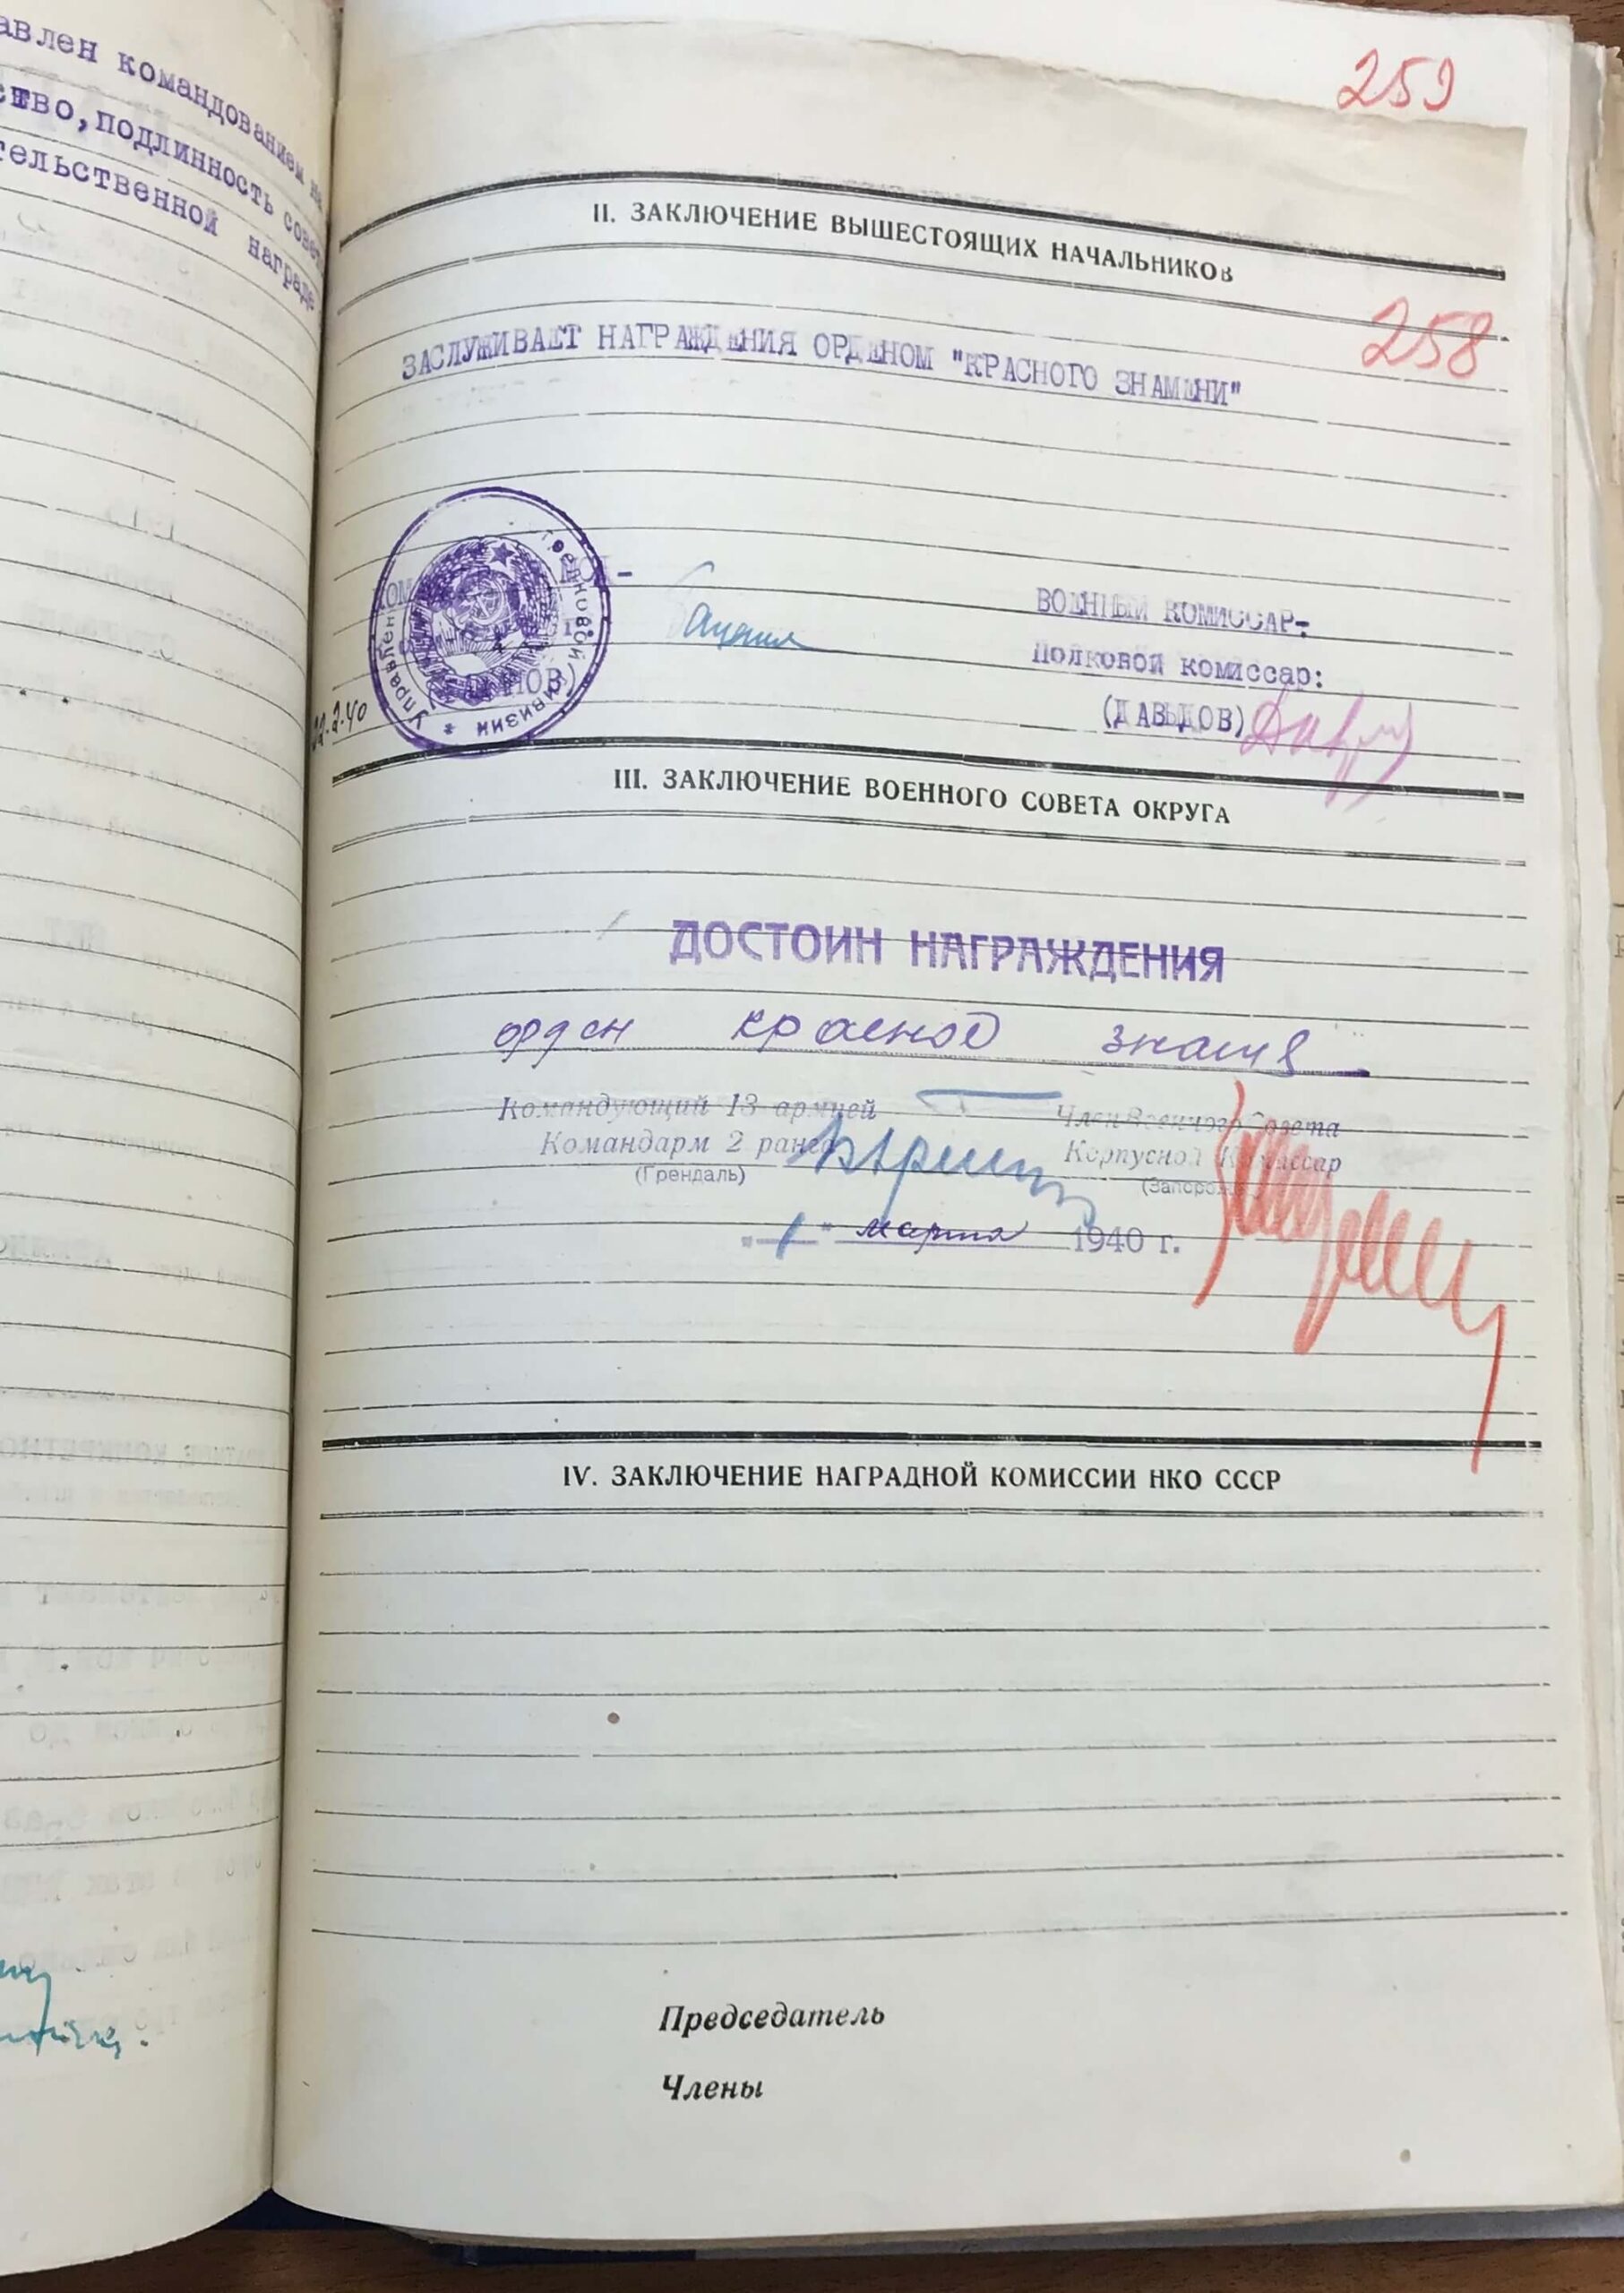 авлен командованием на
ство, подлинность совет
тельственной награде-
259
II. ЗАКЛЮЧЕНИЕ ВЫШЕСТОЯЩИХ НАЧАЛЬНИКОВ
258
ЗАСЛУЖИВАЕТ НАГРАЖДЕНИЯ ОРДЕНОМ "КРАСНОГО ЗНАМЕНИ"
ВОЕННЫЙ КОМИССАР-
Полковой комиссар:
(ДАВЫДОВ)
22.2.40
III. ЗАКЛЮЧЕНИЕ ВОЕННОГО СОВЕТА ОКРУГА
ДОСТОИН НАГРАЖДЕНИЯ
орден красное знамя
Командующий 13 армией Член Военного Совета
Командарм 2 ранга Корпусной Комиссар
(Грендаль)
"1" марта 1940 г.
IV. ЗАКЛЮЧЕНИЕ НАГРАДНОЙ КОМИССИИ НКО СССР
Председатель
Члены